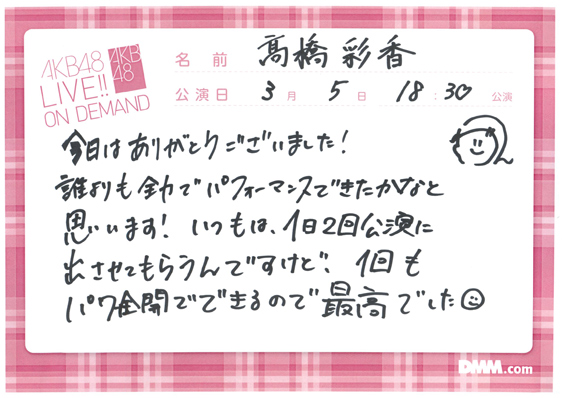 AKB48
LIVE!!
ON DEMAND
AKB
48
名前 高橋彩香
公演日 3月5日 18:30 公演
今日はありがとうございました!
誰よりも全力でパフォーマンスできたかなと
思います! いつもは、1日2回公演に
出させてもらうんですけど、1回も
パワ全開でできるので最高でした
DMM.com